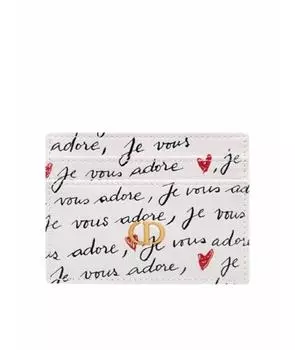 adore, Je vous
Je vous adore, Je
vous adore, Je vous adore,
Je vous adore, Je vous
adore, Je vous adore,
Je vous adore, Je
CD